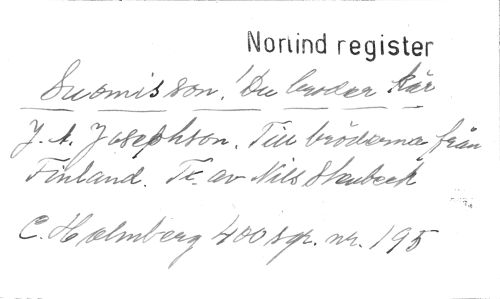 Norlind register
Suomis son! Du broder kär
J. A. Josephson. Till bröderna från
Finland. Tr. av Nils Stenbeck
C. Holmberg 400 sgr. nr. 195